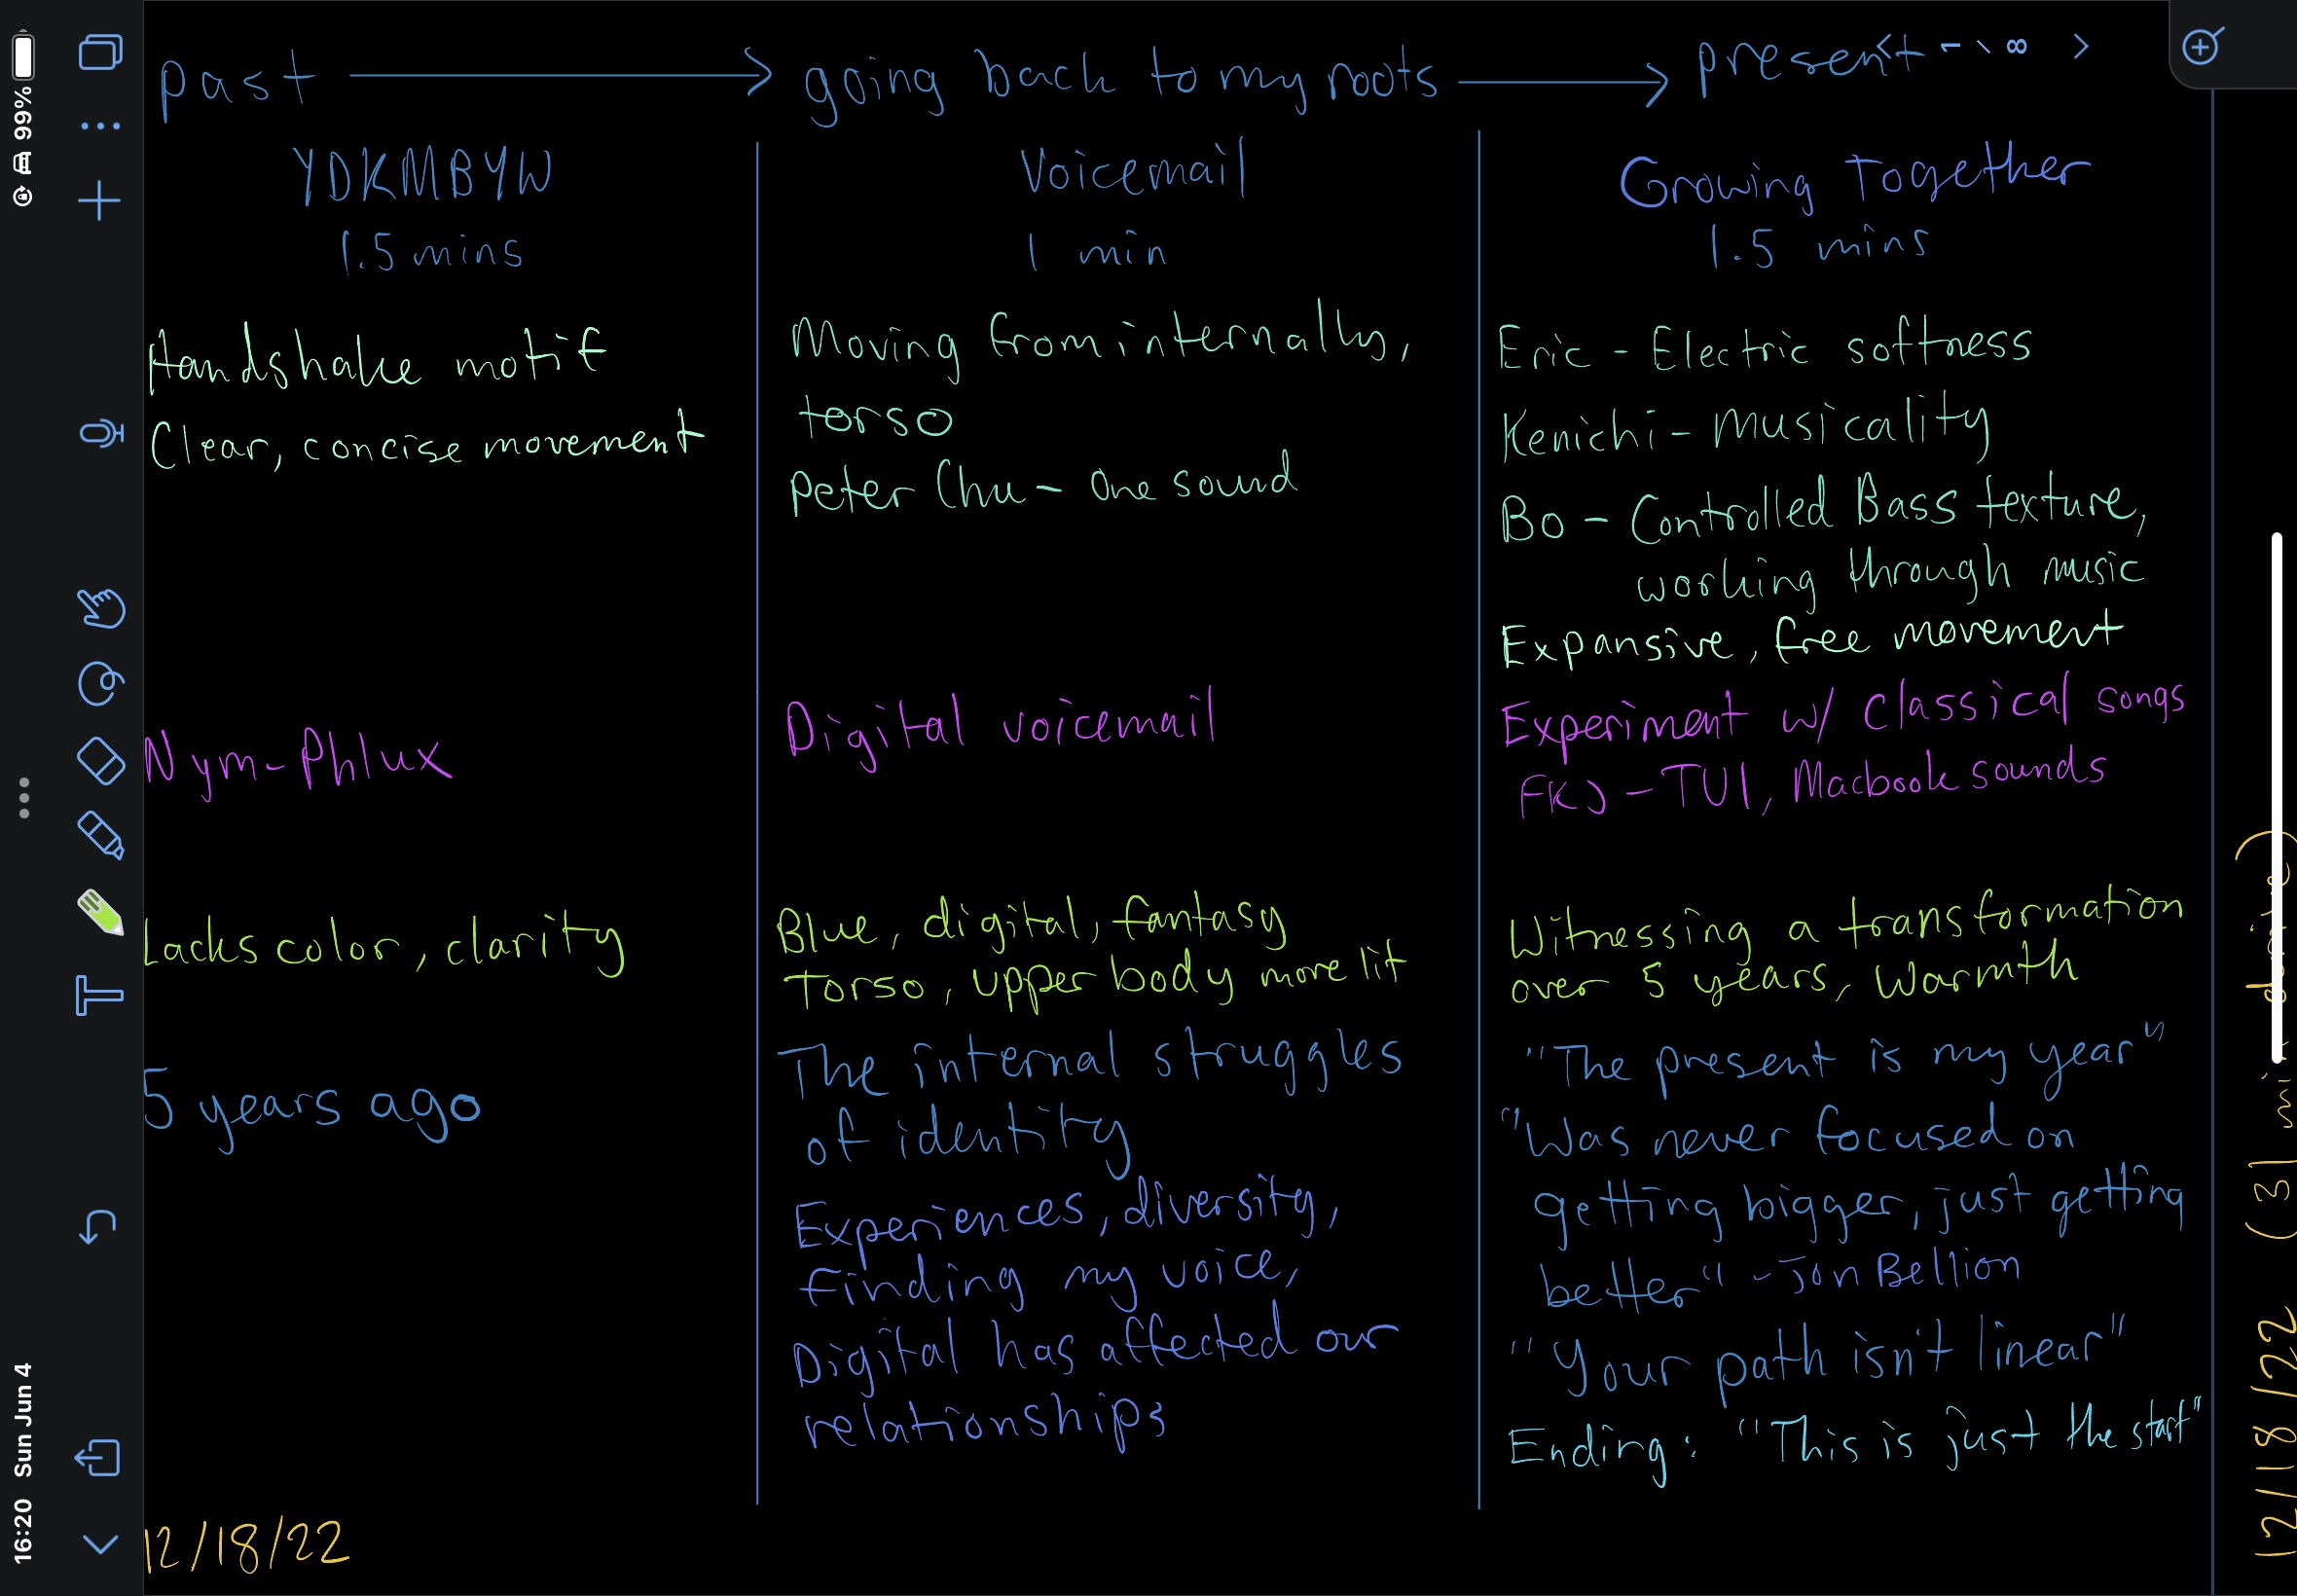 past → going back to my roots → present
YDKMBYW
1.5 mins
Handshake motif
Clear, concise movement
Nym-Phlux
Lacks color, clarity
5 years ago
12/18/22
Voicemail
1 min
Moving from internally,
torso
Peter Chu - One sound
Digital voicemail
Blue, digital, fantasy
Torso, upper body more lit
The internal struggles
of identity
Experiences, diversity,
finding my voice,
Digital has affected our
relationships
Growing Together
1.5 mins
Eric - Electric softness
Kenichi - Musicality
Bo - Controlled Bass texture,
working through music
Expansive, free movement
Experiment w/ Classical songs
FKJ - TUI, Macbook sounds
Witnessing a transformation
over 5 years, Warmth
"The present is my year"
"Was never focused on
getting bigger, just getting
better" - Jon Bellion
"Your path isn't linear"
Ending: "This is just the start"
16:20 Sun Jun 4
99%
1 \ 8
T
12/18/22 (31 min